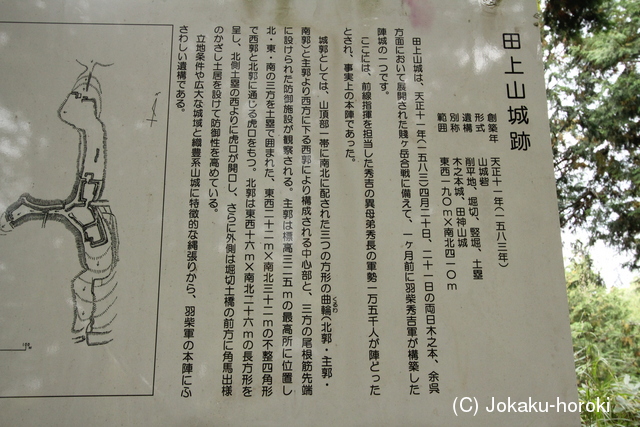 田上山城跡
創築年　天正十一年(一五八三年)
形式　山城砦
遺構　削平地、堀切、竪堀、土塁
別称　木之本城、田神山城
範囲　東西一九〇ｍ×南北四一〇ｍ
田上山城は、天正十一年(一五八三)四月二十日、二十一日の両日木之本、余呉
方面において展開された賤ヶ岳合戦に備えて、一ヶ月前に羽柴秀吉軍が構築した
陣城の一つです。
ここには、前線指揮を担当した秀吉の異母弟秀長の軍勢一万五千人が陣どった
とされ、事実上の本陣であった。
城郭としては、山頂部一帯に南北に配された三つの方形の曲輪(北郭・主郭・
くるわ
南郭)と主郭より西方に下る西郭により構成される中心部と、三方の尾根筋先端
に設けられた防御施設が観察される。主郭は標高三二五ｍの最高所に位置し
北・東・南の三方を土塁で囲まれた、東西二十二ｍ×南北三十二ｍの不整四角形
で西郭と北郭に通じる虎口をもつ。北郭は東西十六ｍ×南北二十六ｍの長方形を
呈し、北側土塁の西よりに虎口が開口し、さらに外側は堀切土橋の前方に角馬出様
のかざし土居を設けて防御性を高めている。
立地条件や広大な城域と織豊系山城に特徴的な縄張りから、羽柴軍の本陣にふ
さわしい遺構である。
(C) Jokaku-horoki